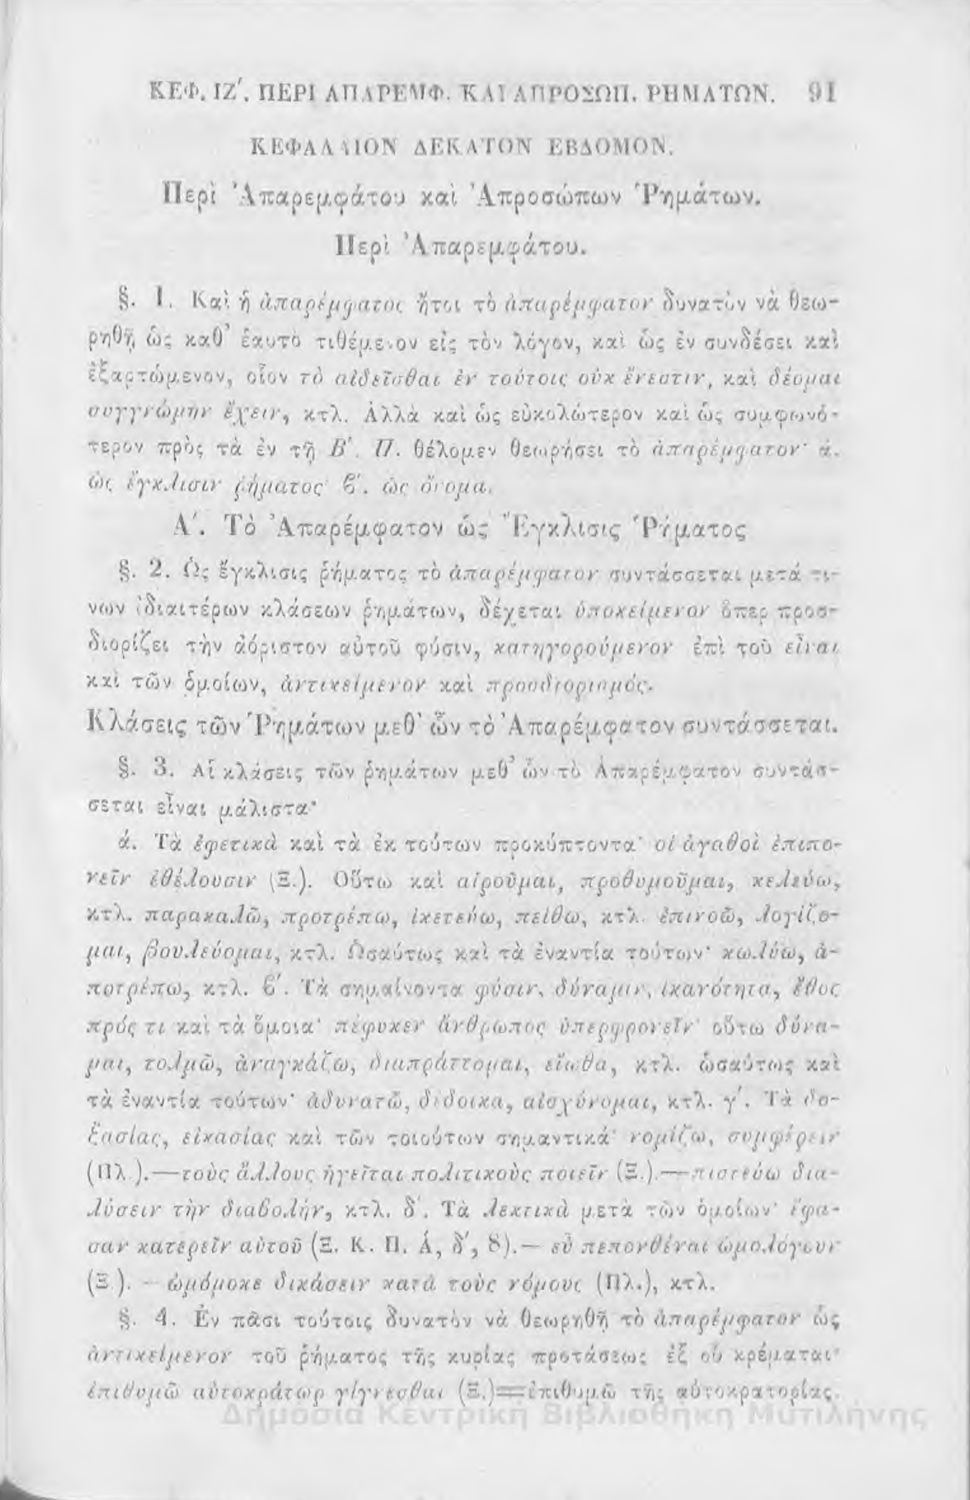 ΚΕΦ. ΙΖ'. ΠΕΡΙ ΑΠΑΡΕΜΦ. ΚΑΙ ΑΠΡΟΣΩΠ. ΡΗΜΑΤΩΝ. 91
ΚΕΦΑΛΑΙΟΝ ΔΕΚΑΤΟΝ ΕΒΔΟΜΟΝ.
Περὶ Ἀπαρεμφάτου καὶ Ἀπροσώπων Ῥημάτων.
Περὶ Ἀπαρεμφάτου.
§. 1. Καὶ ἡ ἀπαρέμφατος ἤτοι τὸ ἀπαρέμφατον δυνατὸν νὰ θεω-
ρηθῇ ὡς καθ' ἑαυτὸ τιθέμενον εἰς τὸν λόγον, καὶ ὡς ἐν συνδέσει καὶ
ἐξαρτώμενον, οἷον τὸ αἰδεῖσθαι ἐν τούτοις οὐκ ἔνεστιν, καὶ δέομαι
συγγνώμην ἔχειν, κτλ. Ἀλλὰ καὶ ὡς εὐκολώτερον καὶ ὡς συμφωνό-
τερον πρὸς τὰ ἐν τῇ Β'. Π. θέλομεν θεωρήσει τὸ ἀπαρέμφατον· ά.
ὡς ἔγκλισιν ῥήματος· ϐ'. ὡς ὄνομα.
Α'. Τὸ Ἀπαρέμφατον ὡς Ἔγκλισις Ῥήματος
§. 2. Ὡς ἔγκλισις ῥήματος τὸ ἀπαρέμφατον συντάσσεται μετά τι-
νων ἰδιαιτέρων κλάσεων ῥημάτων, δέχεται ὑποκείμενον ὅπερ προσ-
διορίζει τὴν ἀόριστον αὐτοῦ φύσιν, κατηγορούμενον ἐπὶ τοῦ εἶναι
καὶ τῶν ὁμοίων, ἀντικείμενον καὶ προσδιορισμός.
Κλάσεις τῶν Ῥημάτων μεθ' ὧν τὸ Ἀπαρέμφατον συντάσσεται.
§. 3. Αἱ κλάσεις τῶν ῥημάτων μεθ' ὧν τὸ Ἀπαρέμφατον συντάσ-
σεται εἶναι μάλιστα·
ά. Τὰ ἐφετικὰ καὶ τὰ ἐκ τούτων προκύπτοντα· οἱ ἀγαθοὶ ἐπιπο-
νεῖν ἐθέλουσιν (Ξ.). Οὕτω καὶ αἱροῦμαι, προθυμοῦμαι, κελεύω,
κτλ. παρακαλῶ, προτρέπω, ἱκετεύω, πείθω, κτλ. ἐπινοῶ, λογίζο-
μαι, βουλεύομαι, κτλ. Ὡσαύτως καὶ τὰ ἐναντία τούτων· κωλύω, ἀ-
ποτρέπω, κτλ. ϐ'. Τὰ σημαίνοντα φύσιν, δύναμιν, ἱκανότητα, ἔθος
πρός τι καὶ τὰ ὅμοια· πέφυκεν ἄνθρωπος ὑπερφρονεῖν· οὕτω δύνα-
μαι, τολμῶ, ἀναγκάζω, διαπράττομαι, εἴωθα, κτλ. ὡσαύτως καὶ
τὰ ἐναντία τούτων· ἀδυνατῶ, δέδοικα, αἰσχύνομαι, κτλ. γ'. Τὰ δο-
ξασίας, εἰκασίας καὶ τῶν τοιούτων σημαντικά· νομίζω, συμφέρειν
(Πλ.).—τοὺς ἄλλους ἡγεῖται πολιτικοὺς ποιεῖν (Ξ.).—πιστεύω δια-
λύσειν τὴν διαβολήν, κτλ. δ'. Τὰ λεκτικὰ μετὰ τῶν ὁμοίων· ἔφα-
σαν κατερεῖν αὐτοῦ (Ξ. Κ. Π. Α, δ', 8).— εὖ πεπονθέναι ὡμολόγουν
(Ξ.). — ὠμόμοκε δικάσειν κατὰ τοὺς νόμους (Πλ.), κτλ.
§. 4. Ἐν πᾶσι τούτοις δυνατὸν νὰ θεωρηθῇ τὸ ἀπαρέμφατον ὡς
ἀντικείμενον τοῦ ῥήματος τῆς κυρίας προτάσεως ἐξ οὗ κρέμαται·
ἐπιθυμῶ αὐτοκράτωρ γίγνεσθαι (Ξ.)=ἐπιθυμῶ τῆς αὐτοκρατορίας.
Δημόσια Κεντρική Βιβλιοθήκη Μυτιλήνης